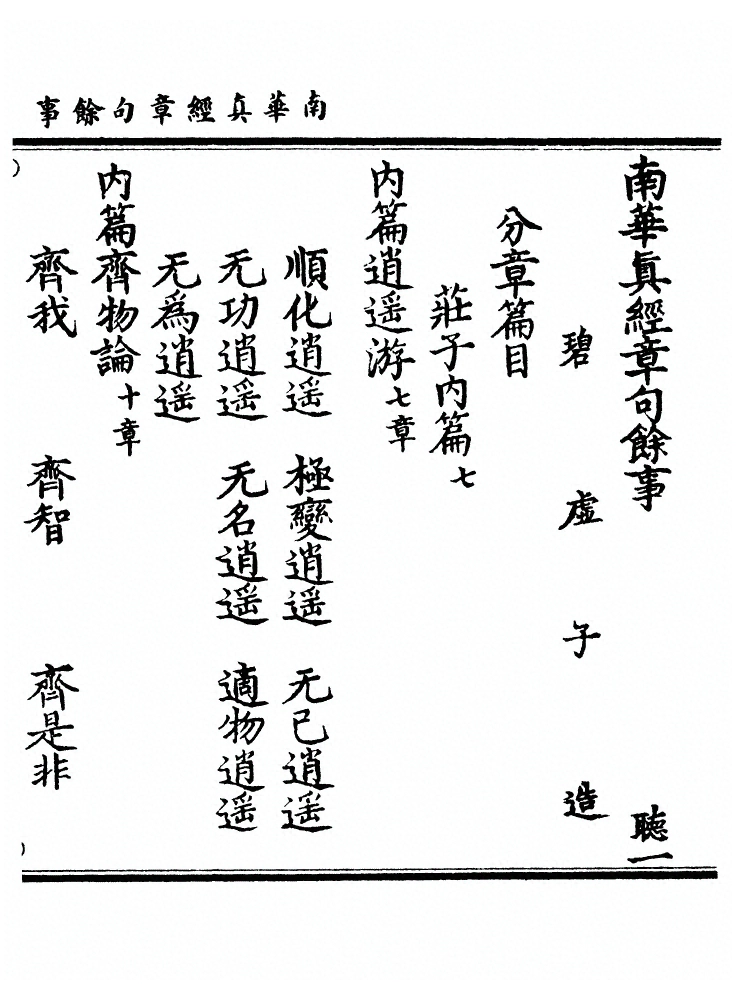 南華真經章句餘事
南華眞經章句餘事 聽一
碧虛子造
分章篇目
莊子內篇七
內篇逍遥游七章
順化逍遥 極變逍遥 无已逍遥
无功逍遥 无名逍遥 適物逍遥
无爲逍遥
內篇齊物論十章
齊我 齊智 齊是非